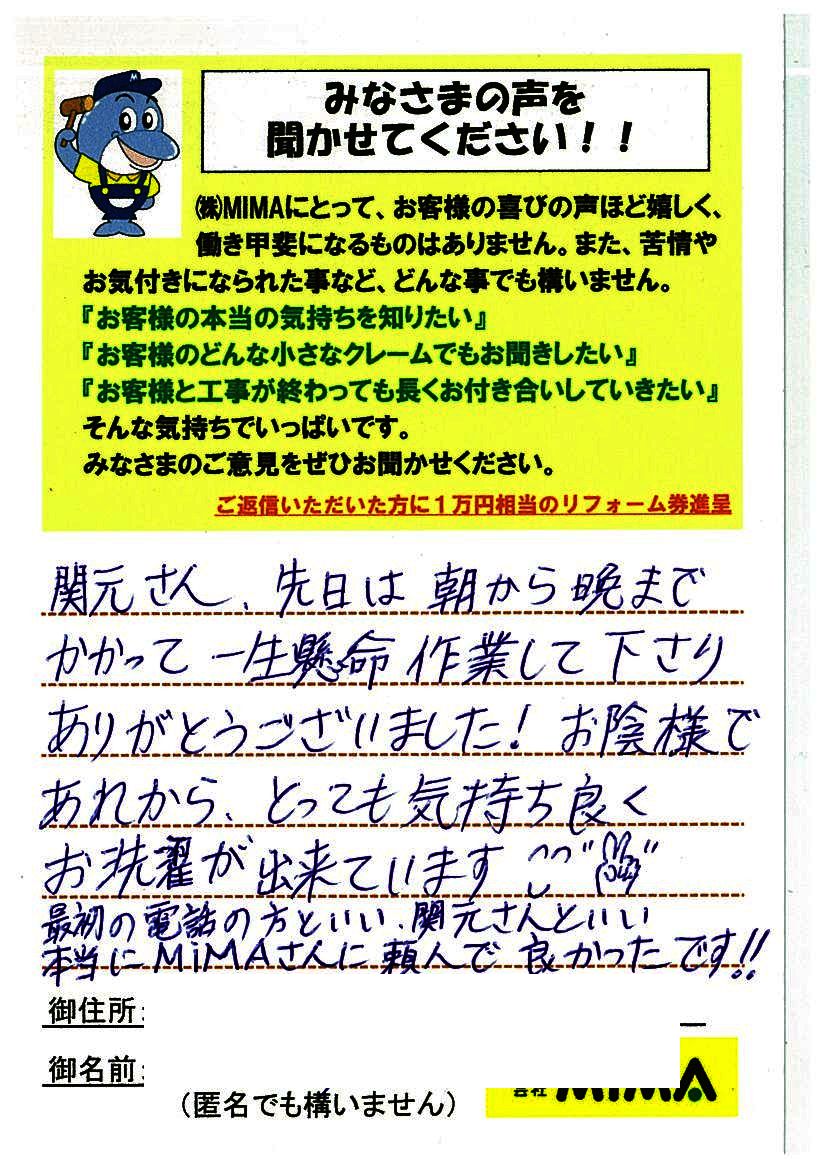 みなさまの声を
聞かせてください！！
㈱MIMAにとって、お客様の喜びの声ほど嬉しく、
働き甲斐になるものはありません。また、苦情や
お気付きになられた事など、どんな事でも構いません。
『お客様の本当の気持ちを知りたい』
『お客様のどんな小さなクレームでもお聞きしたい』
『お客様と工事が終わっても長くお付き合いしていきたい』
そんな気持ちでいっぱいです。
みなさまのご意見をぜひお聞かせください。
ご返信いただいた方に１万円相当のリフォーム券進呈
関元さん、先日は朝から晩まで
かかって一生懸命作業して下さり
ありがとうございました！お陰様で
あれから、とっても気持ち良く
お洗濯が出来ています
最初の電話の方といい、関元さんといい
本当にMiMAさんに頼んで良かったです!!
御住所:
御名前:
（匿名でも構いません）
会社 MIMA